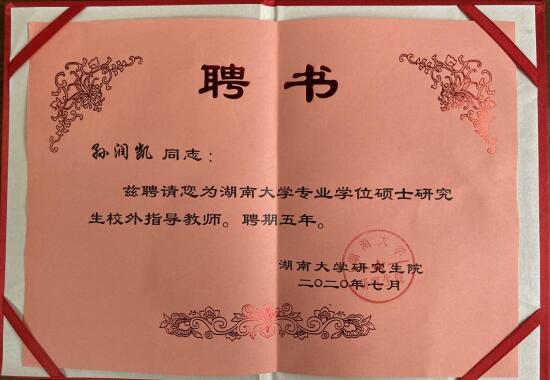 聘书
孙润凯 同志：
兹聘请您为湖南大学专业学位硕士研究
生校外指导教师。聘期五年。
湖南大学研究生院
二〇二〇年七月
湖南大学
研究生院